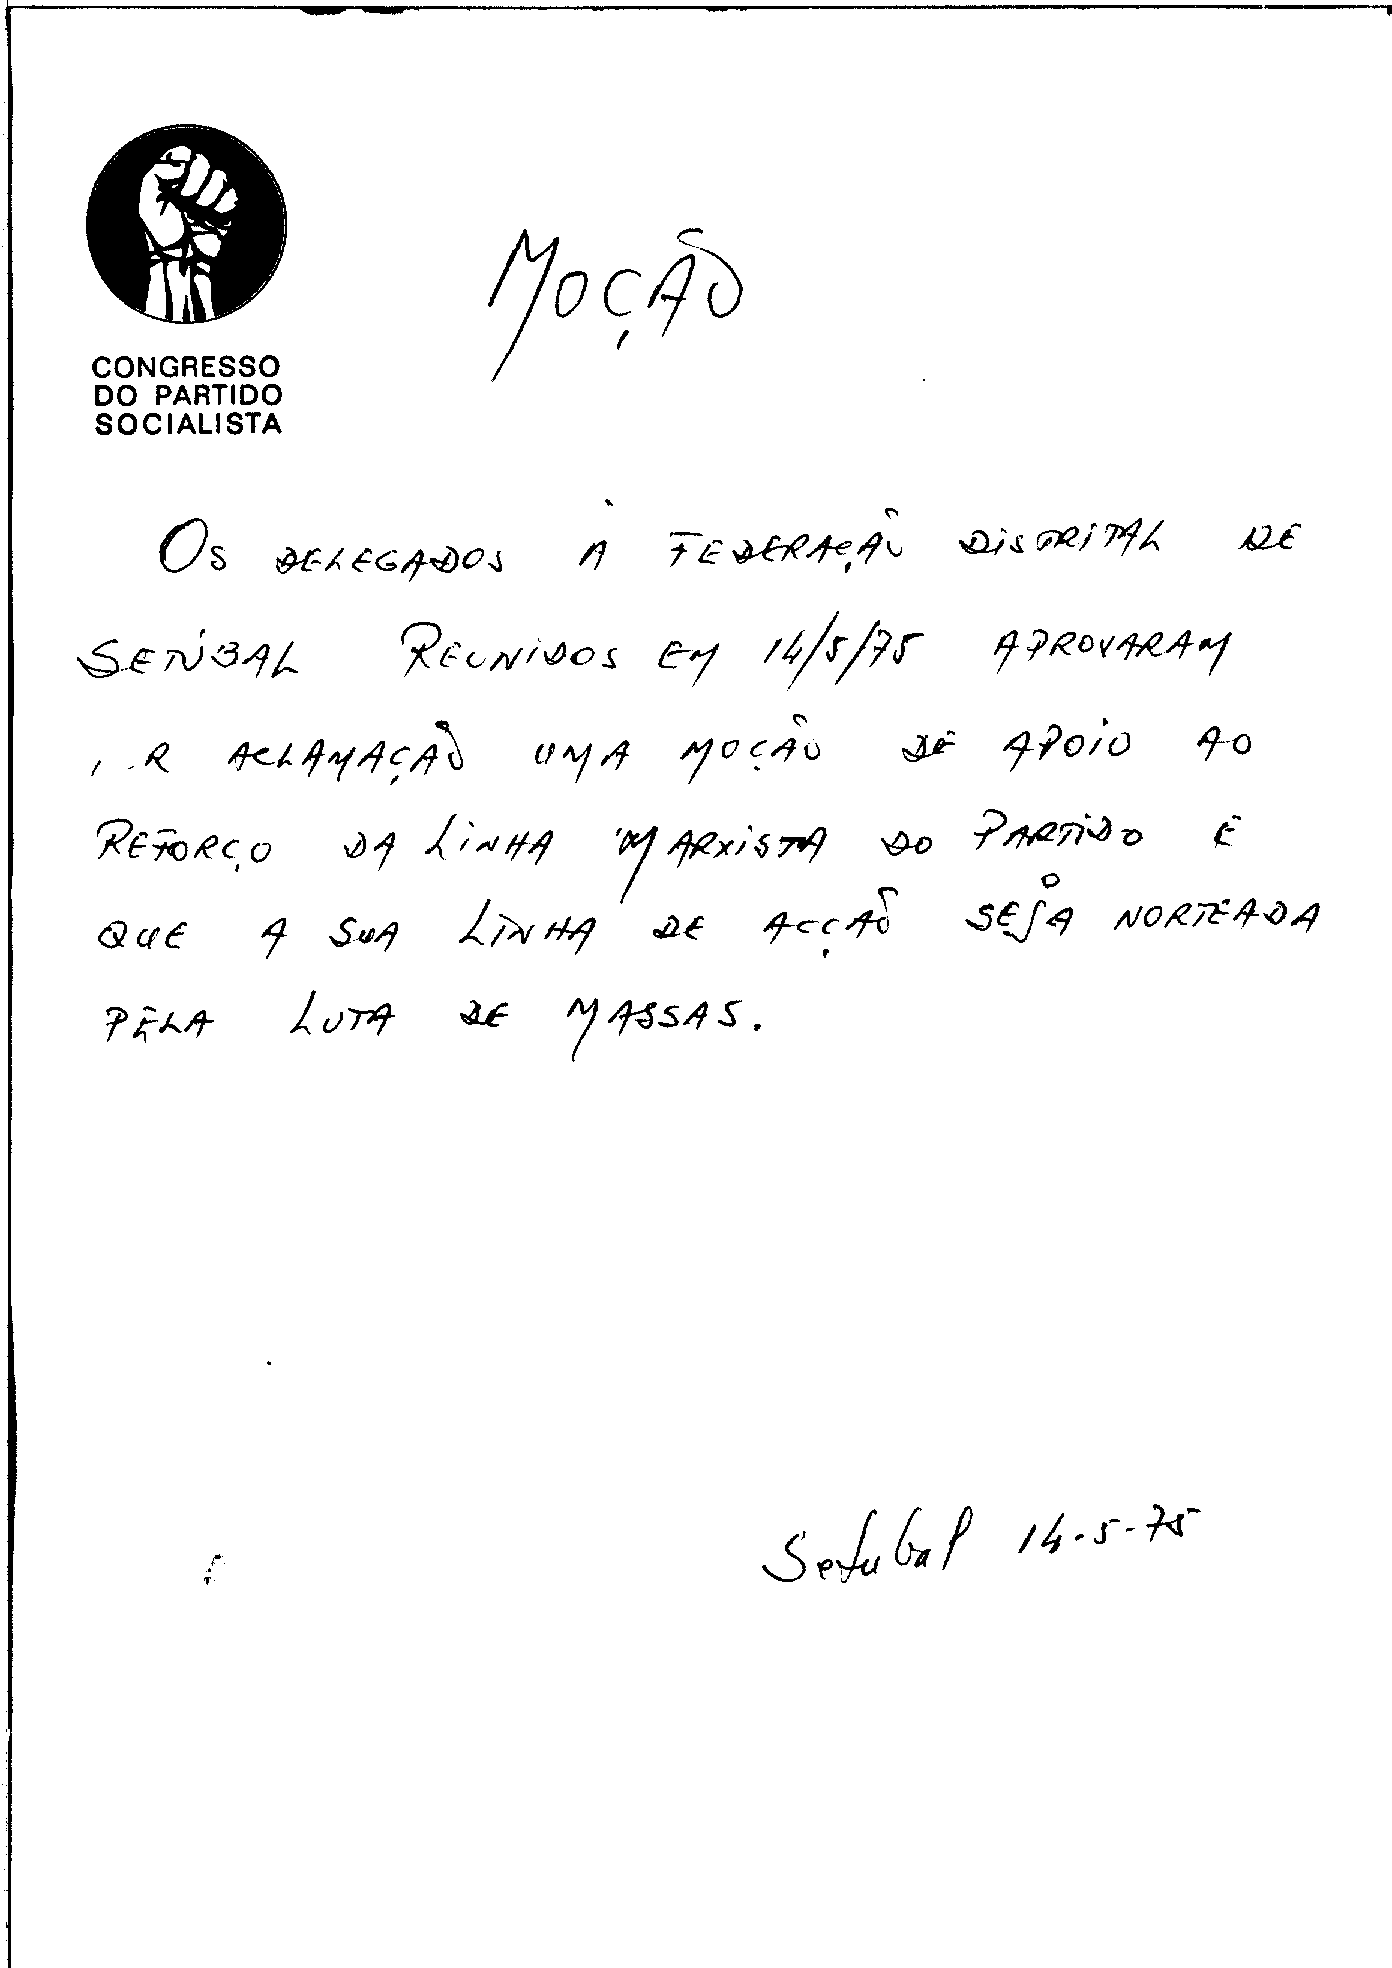 CONGRESSO
DO PARTIDO
SOCIALISTA
MOÇÃO
OS DELEGADOS À FEDERAÇÃO DISTRITAL DE
SETÚBAL REUNIDOS EM 14/5/75 APROVARAM
R ACLAMAÇÃO UMA MOÇÃO DE APOIO AO
REFORÇO DA LINHA MARXISTA DO PARTIDO E
QUE A SUA LINHA DE ACÇÃO SEJA NORTEADA
PELA LUTA DE MASSAS.
Setubal 14-5-75